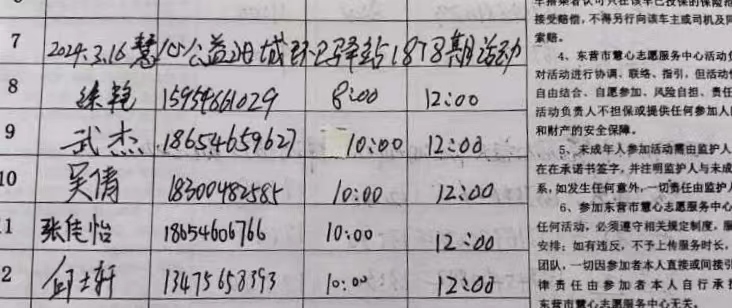 7 2024.3.16慧心公益泊城环卫驿站1878期活动
8 徐艳 15954661029 8:00 12:00
9 武杰 18654659627 10:00 12:00
10 吴倩 18300482585 10:00 12:00
1 张佳怡 18654606766 10:00 12:00
2 邱士轩 13475658393 10:00 12:00
接受赔偿，不得另行向该车主或司机及同
索赔。
4、东营市慧心志愿服务中心活动负
对活动进行协调、联络、指引，但活动
自由结合、自愿参加、风险自担、责任
活动负责人不担保或提供任何参加人
和财产的安全保障。
5、未成年人参加活动需由监护人
在在承诺书签字，并注明监护人与未成
系，如发生任何意外，一切责任由监护
6、参加东营市慧心志愿服务中心
任何活动，必须遵守相关规定制度，服
安排；如有违反，不予上传服务时长，
团队，一切因参加者本人直接或间接引
律责任由参加者本人自行承担
东营市慧心志愿服务中心无关。